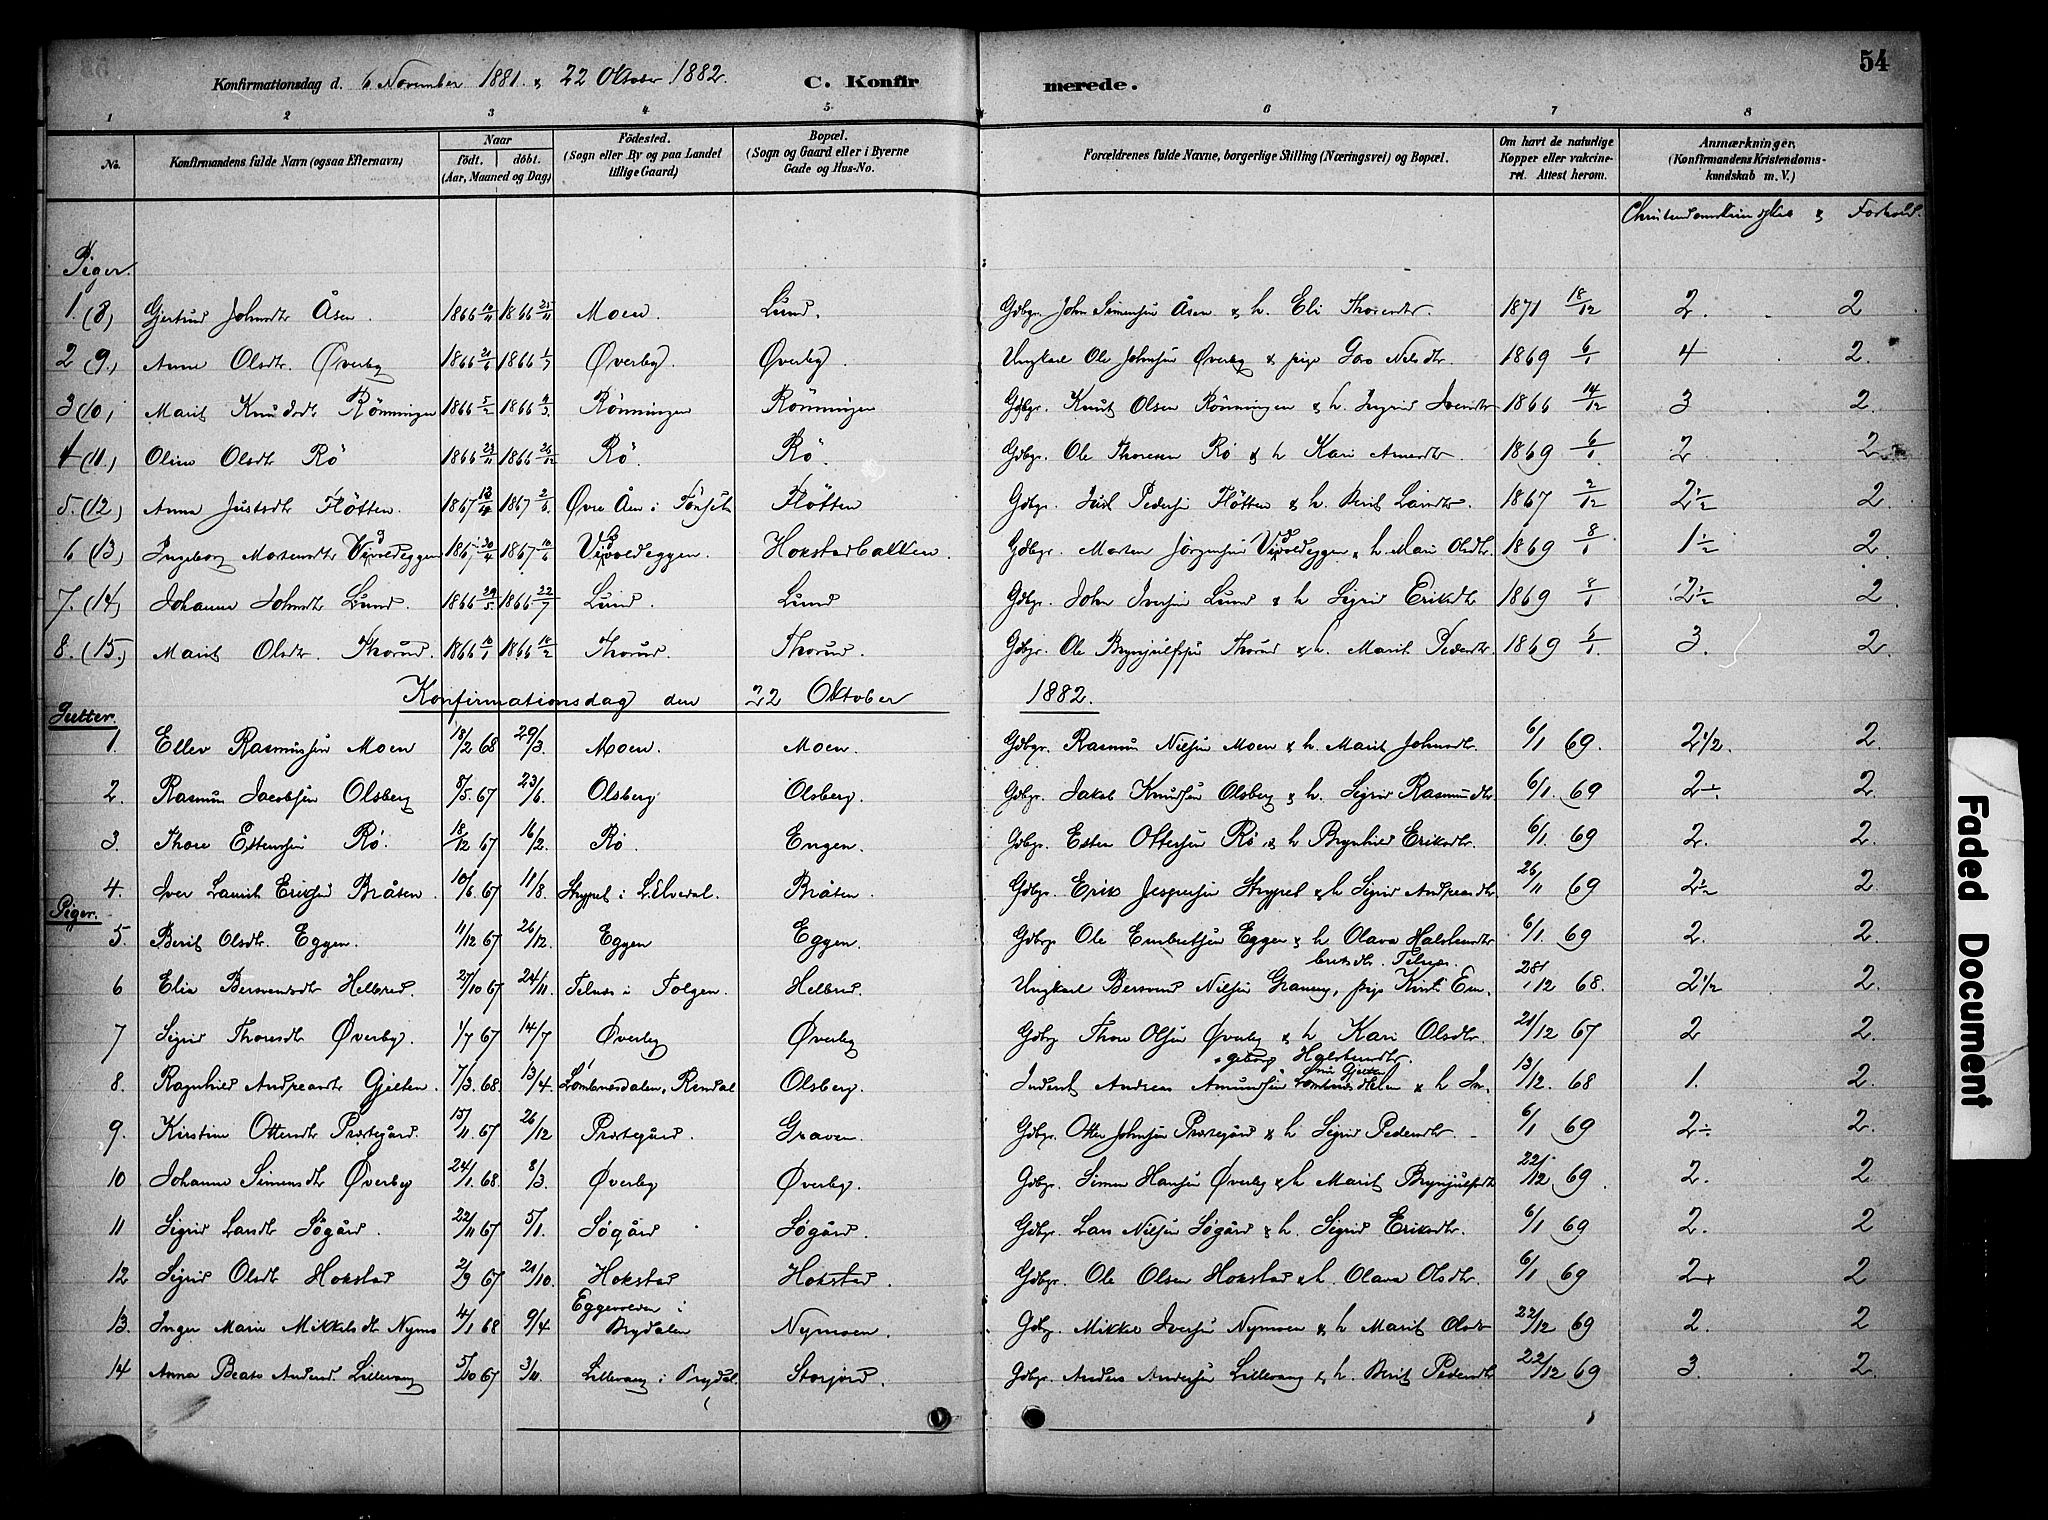 54
Konfirmationsdag d. 6 November 1881 & 22 Oktober 1882. C. Konfirmerede.
1 2 3 4 5. 6 7 8
No. Konfirmandens fulde Navn (ogsaa Efternavn) Naar födt. döbt. (Aar, Maaned og Dag) Födested. (Sogn eller By og paa Landet tillige Gaard) Bopæl. (Sogn og Gaard eller i Byerne Gade og Hus-No. Forældrenes fulde Navne, borgerlige Stilling (Næringsvei) og Bopæl. Om havt de naturlige Kopper eller vakcineret. Attest herom. Anmærkninger. (Konfirmandens Kristendomskundskab m. V.)
Christendomskundskab & Forhold.
Piger.
1 (8) Gjertrud Johnsdtr Åsen. 1866 10/11 1866 25/11 Moen. Lund. Gdbgr. John Simensen Åsen & h. Eli Thoresdtr. 1871 18/12 2. 2
2 (9.) Anne Olsdtr. Øverby 1866 1866 Øverby. Øverby. Ungkarl Ole Johnsen Øverby & pige Goro Nilsdtr 1869 6/1 4 2.
3 (10) Marit Knudsdtr Rönningen 1866 5/2 1866 4/3 Rönningen Rönningen Gdbgr. Knut Olsen Rönningen & h. Ingrid 1866 14/12 3 2.
4 (11.) Oline Olsdtr Rö 1866 23/11 1866 26/12 Rö. Rö. Gdbgr. Ole Thoresen Rö & h Kari 1869 6/1. 2 2
5. (12) Anna Justsdtr Flötten. 1867 13/4 1867 2/6 Øvre Åen i Tönset Flötten Gdbgr. Just Pedersen Flötten & h. Berit Larsdtr. 1867 2/12 2 1/2 2.
6 (13) Ingeborg Mortensdtr 1867 30/4 1867 10/6 Hokstadbakken. Gdbgr. Morten Jörgensen & h. Mari Olsdtr. 1869 8/1 1 1/2 2.
7. (14) Johanne Johnsdtr Lund. 1866 29/5 1866 22/7 Lund. Lund Gdbgr. John Iversen Lund & h Sigrid Eriksdtr 1869 8/1 2 1/2 2
8. (15.) Marit Olsdtr. Thorud. 1866 10/1 1866 18/2 Thorud. Thorud. Gdbgr. Ole Brynjulfsen Thorud & h. Marit Pedersdtr. 1869 6/1. 3. 2.
Konfirmationsdag den 22 Oktober 1882.
Gutter.
1. Ellev Rasmussen Moen 18/2 68 29/3. Moen. Moen. Gdbgr. Rasmus Nilsen Moen & h. Marit Johnsdtr. 6/1 69. 2 1/2. 2.
2. Rasmus Jacobsen Olsberg 8/5. 67 23/6. Olsberg Olsberg. Gdbgr. Jakob Knudsen Olsberg & h. Sigrid Rasmusdtr. 6/1. 69 2 ÷. 2.
3. Thore Estensen Rö. 18/12 67 16/2. Rö. Engen. Gdbgr. Esten Ottersen Rö & h Brynhild Eriksdtr. 6/1 69 2. 2.
4. Iver Laurits Eriksen Bråten. 10/6 67 11/8. Strypet i Lilvedal. Bråten. Gdbgr. Erik Jespersen Strypet & h Sigrid Andreasdtr 26/11 69 2 1/2 2
Piger.
5 Berit Olsdtr. Eggen. 11/12 67 26/12. Eggen Eggen. Gdbgr. Ole Embretsen Eggen & h Olava Halstensdtr 6/1. 69 2. 2.
6 Elia Bersvendsdtr Helbred. 27/10 67 24/11. Telnes i Tolgen. Helbred. Ungkarl Bersvend Nilsen Graneng, pige Kirsti Em-bretsdtr. Telnes. 28/12 68. 2 1/2 2.
7 Sigrid Thoresdtr Øverby. 1/7 67 14/7 Øverby Øverby Gdbgr Thore Olsen Øverby & h Kari Olsdtr. 21/12 67 2 2.
8. Ragnhild Andreasdtr Gjelten. 7/3. 68 13/4. Lomnesdalen, Rendal Olsberg. Inderst Andreas Amundsen & h In-geborg Halstensdtr. 13/12. 68 1. 2.
9. Kirstine Ottersdtr Præstegård. 15/11. 67 26/12 Præstegård. Graven. Gdbgr. Otter Johnsen Præstegård & h. Sigrid Pedersdtr. 6/1 69 2 ÷ 2.
10 Johanne Simensdtr Øverby 24/1. 68 8/3. Øverby Øverby. Gdbgr. Simen Hansen Øverby & h Marit Brynjulfsdtr 22/12 69. 2. 2
11 Sigrid Larsdtr Søgård. 22/11 67 5/1. Søgård Søgård. Gdbgr. Lars Nilsen Søgård & h. Sigrid Eriksdtr. 6/1 69 2. 2
12 Sigrid Olsdtr Hokstad 2/9 67 21/10. Hokstad Hokstad. Gdbgr. Ole Olsen Hokstad & h. Olava Olsdtr. 6/1 69 2+ 2
13. Inger Marie Mikkelsdtr Nymo 4/1 68 9/4 Eggevolden i Brydalen Nymoen. Gdbgr. Mikkel Iversen Nymoen & h Marit Olsdtr 22/12 69 2. 2
14 Anna Beate Andersd Lillevang 5/10 67 3/11. Lillevang i Brydal. Storjord. Gdbgr. Anders Andersen Lillevang & h. Berit Pedersdtr 22/12 69 3. 2.
Faded Document